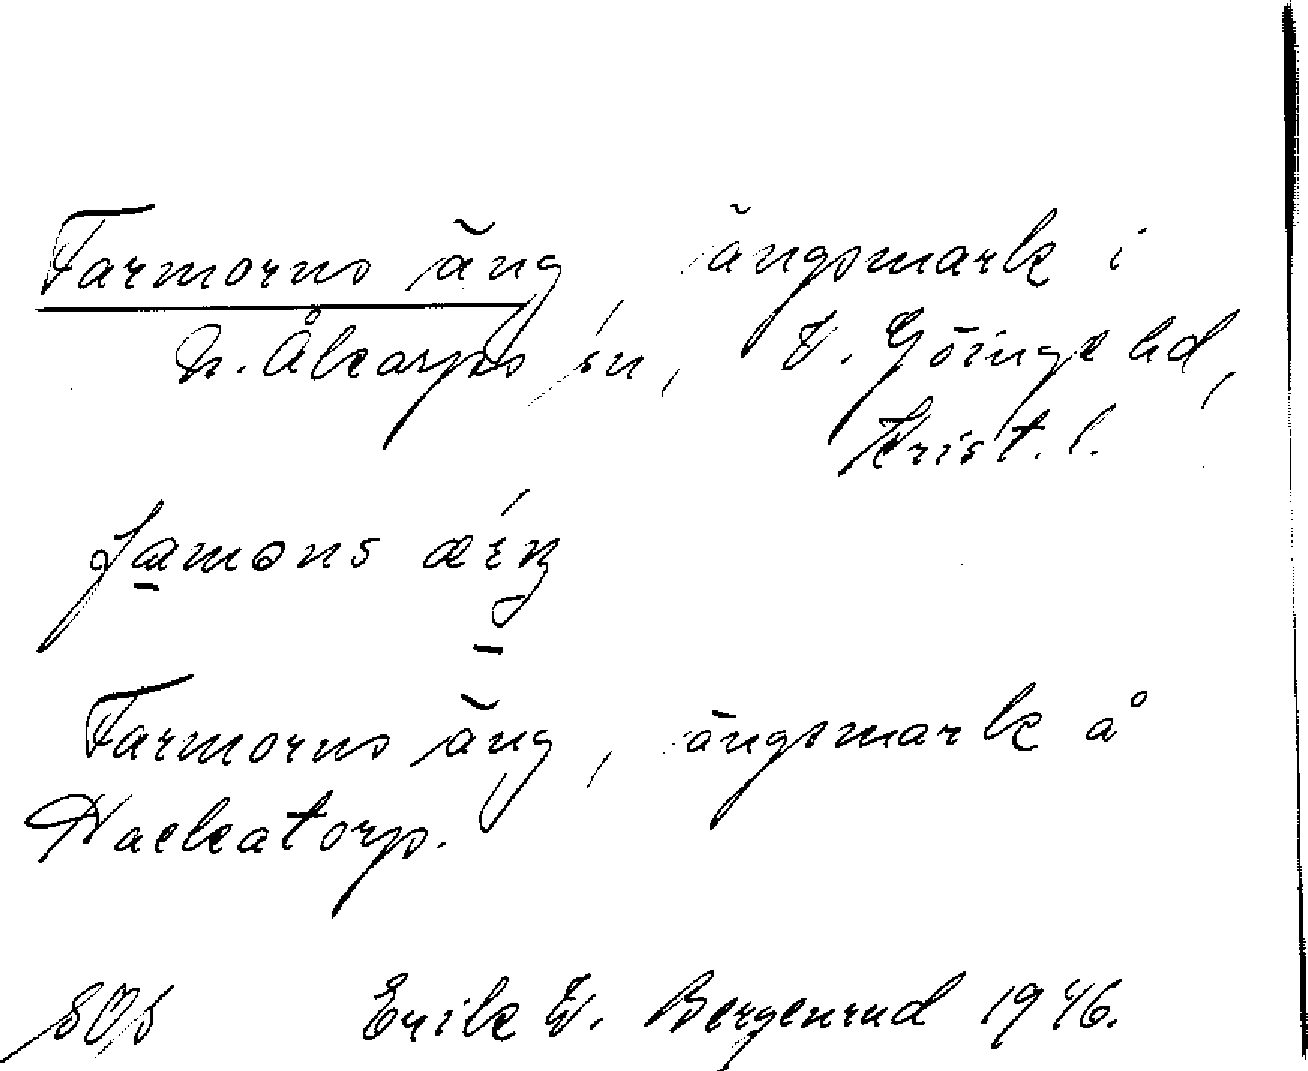 Farmorns äng, ängsmark i
N. Åkarps sn, V. Göinge hd,
Krist. l.
Farmorns äng, ängsmark å
Nackatorp.
Erik W. Bergenrud 1946.